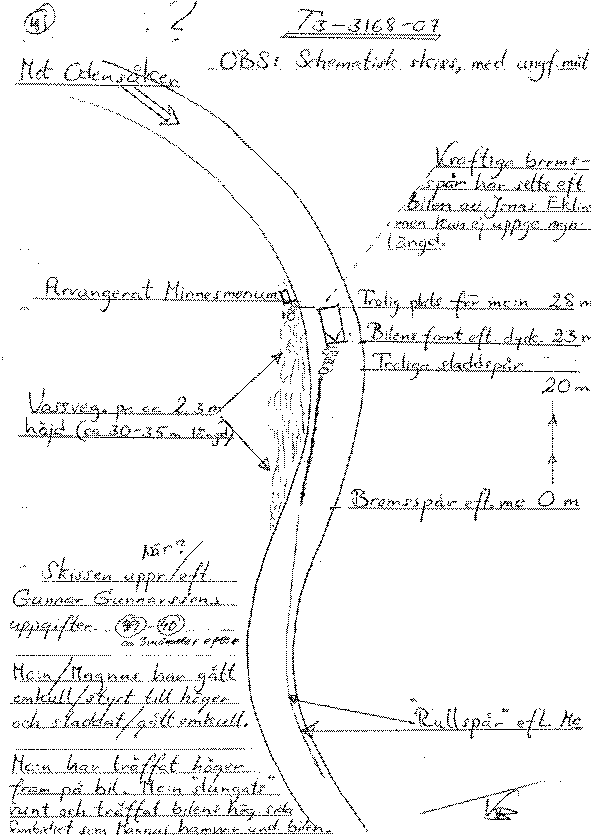 41 ?
T3-3168-07
OBS: Schematisk skiss, med ungf mått
Mot Odensåker
Kraftiga broms-
spår har setts eft
Bilen av Jonas
men kan ej uppge
längd.
Arrangerat Minnesmonum
Trolig plats för mc:n 28 m
Bilens front eft. dyck. 23 m
Troliga sladdspår
20 m
Vassveg. på ca 2 3 m
höjd (ca 30-35 m längd)
Bromsspår eft. mc 0 m
När?
Skissen uppr/eft
Gunnar Gunnarssons
uppgifter. 39-40
ca 3 månader efter
Mc:n/Magnus har gått
omkull/styrt till höger
och sladdat/gått omkull.
"Rullspår" eft. Mc
Mc:n har träffat höger
fram på bil. Mc:n "slungats"
runt och träffat bilens hög sida
samtidigt som Magnus hamnar und bilen.